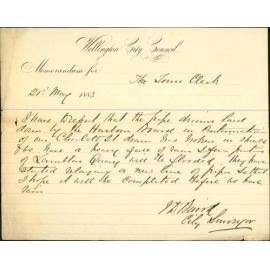 Wellington City Council
Memorandum for
The Town Clerk
21st May 1883
I have to report that the pipe drains laid
down by the Harbour Board in continuation
of our Charlotte St drain has broken in should
we have a heavy fall of rain I fear portion
of Lambton Quay will be flooded. They have
started relaying a new line of pipes so that
I hope it will be completed before we have
rain
J D Baird
City Surveyor